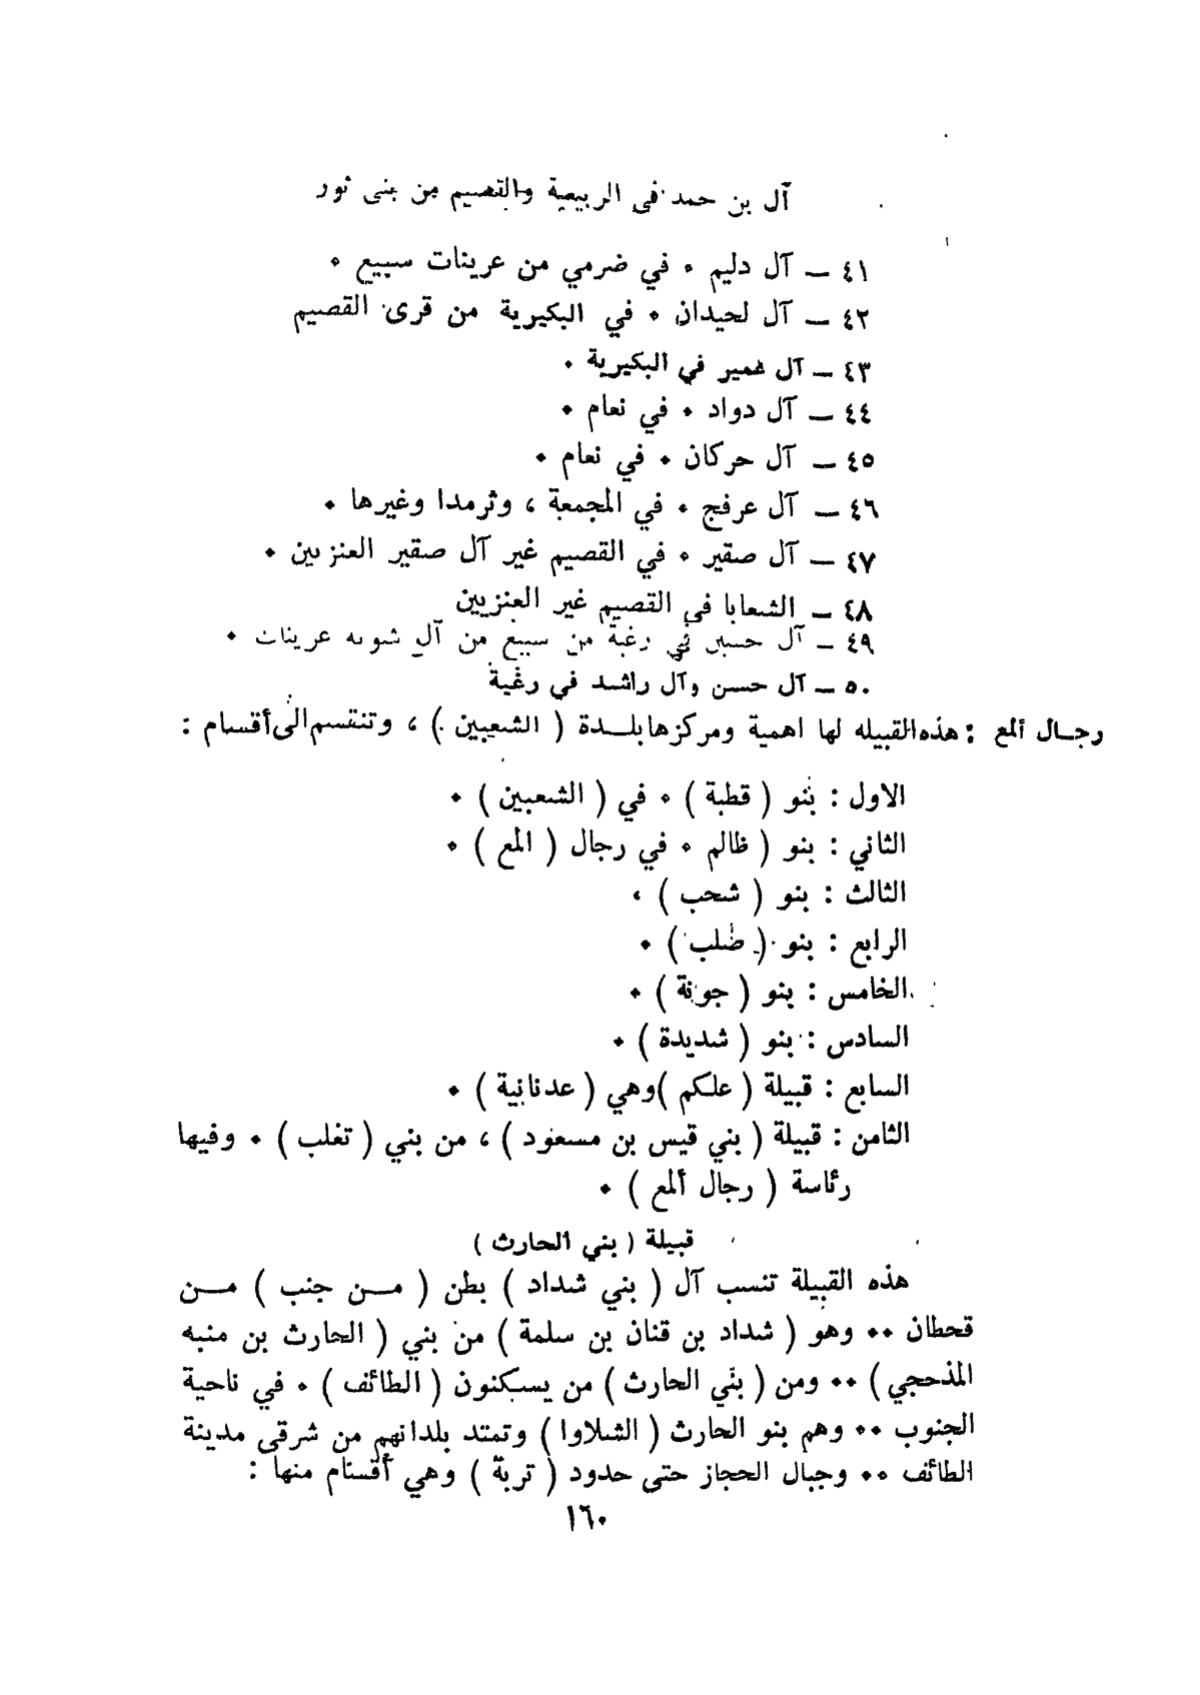 آل بن حمد في الربيعية والقصيم من بني ثور
٤١ – آل دليم ٠ في ضرمي من عرينات سبيع ٠
٤٢ – آل لحيدان ٠ في البكيرية من قرى القصيم
٤٣ – آل عمير في البكيرية .
٤٤ – آل دواد ٠ في نعام ٠
٤٥ – آل حركان ٠ في نعام ٠
٤٦ – آل عرفج ٠ في المجمعة ، وثرمدا وغيرها ٠
٤٧ – آل صقير ٠ في القصيم غير آل صقير العنزيين ٠
٤٨ – الشعابا في القصيم غير العنزيين
٤٩ – آل حسين في رغبة من سبيع من آل شويه عرينات ٠
٥٠ – آل حسن وآل راشد في رغبة
رجال ألمع : هذه القبيله لها اهمية ومركزها بلدة ( الشعبين ) ، وتنقسم الى أقسام :
الاول : بنو ( قطبة ) ٠ في ( الشعبين ) ٠
الثاني : بنو ( ظالم ٠ في رجال ( المع ) ٠
الثالث : بنو ( شحب ) ،
الرابع : بنو ( ضلب ) ٠
الخامس : بنو ( جونة ) ٠
السادس : بنو ( شديدة ) ٠
السابع : قبيلة ( علكم ) وهي ( عدنانية ) ٠
الثامن : قبيلة ( بني قيس بن مسعود ) ، من بني ( تغلب ) ٠ وفيها
رئاسة ( رجال ألمع ) ٠
قبيلة ( بني الحارث )
هذه القبيلة تنسب آل ( بني شداد ) بطن ( من جنب ) من
قحطان ٠٠ وهو ( شداد بن قنان بن سلمة ) من بني ( الحارث بن منبه
المذحجي ) ٠٠ ومن ( بني الحارث ) من يسكنون ( الطائف ) ٠ في ناحية
الجنوب ٠٠ وهم بنو الحارث ( الشلاوا ) وتمتد بلدانهم من شرقي مدينة
الطائف ٠٠ وجبال الحجاز حتى حدود ( تربة ) وهي أقسام منها :
١٦٠